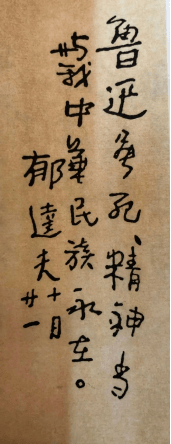 魯迅虽死、精神当
与我中華民族永在。
郁達夫
十月
廿一